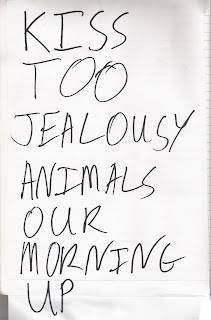 KISS
TOO
JEALOUSY
ANIMALS
OUR
MORNING
UP